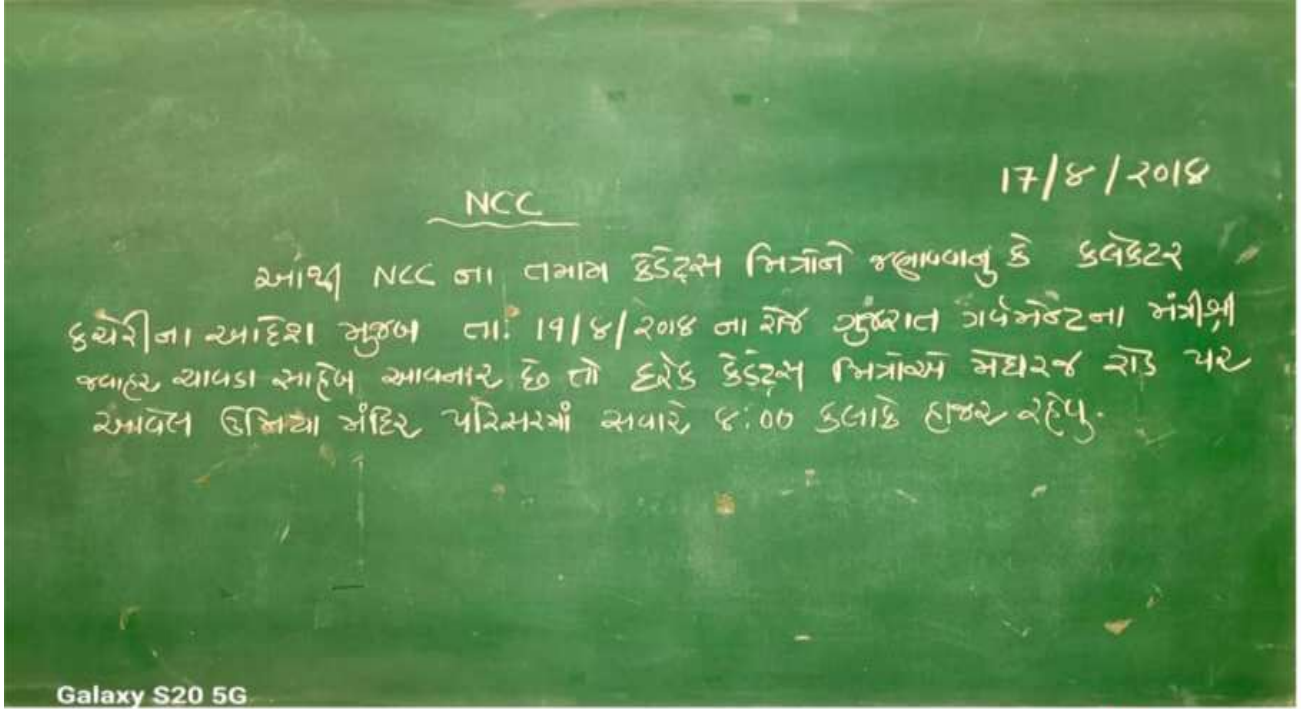 17/૪/૨૦1૪
NCC
આથી NCC ના તમામ કેડેટ્સ મિત્રોને જણાવવાનુ કે કલેકટર
કચેરીના આદેશ મુજબ તા: 19/૪/૨૦1૪ ના રોજ ગુજરાત ગર્વમેન્ટના મંત્રીશ્રી
જવાહર ચાવડા સાહેબ આવનાર છે તો દરેક કેડેટ્સ મિત્રોએ મેઘરજ રોડ પર
આવેલ ઉમિયા મંદિર પરિસરમાં સવારે ૪:00 કલાકે હાજર રહેવુ.
Galaxy S20 5G